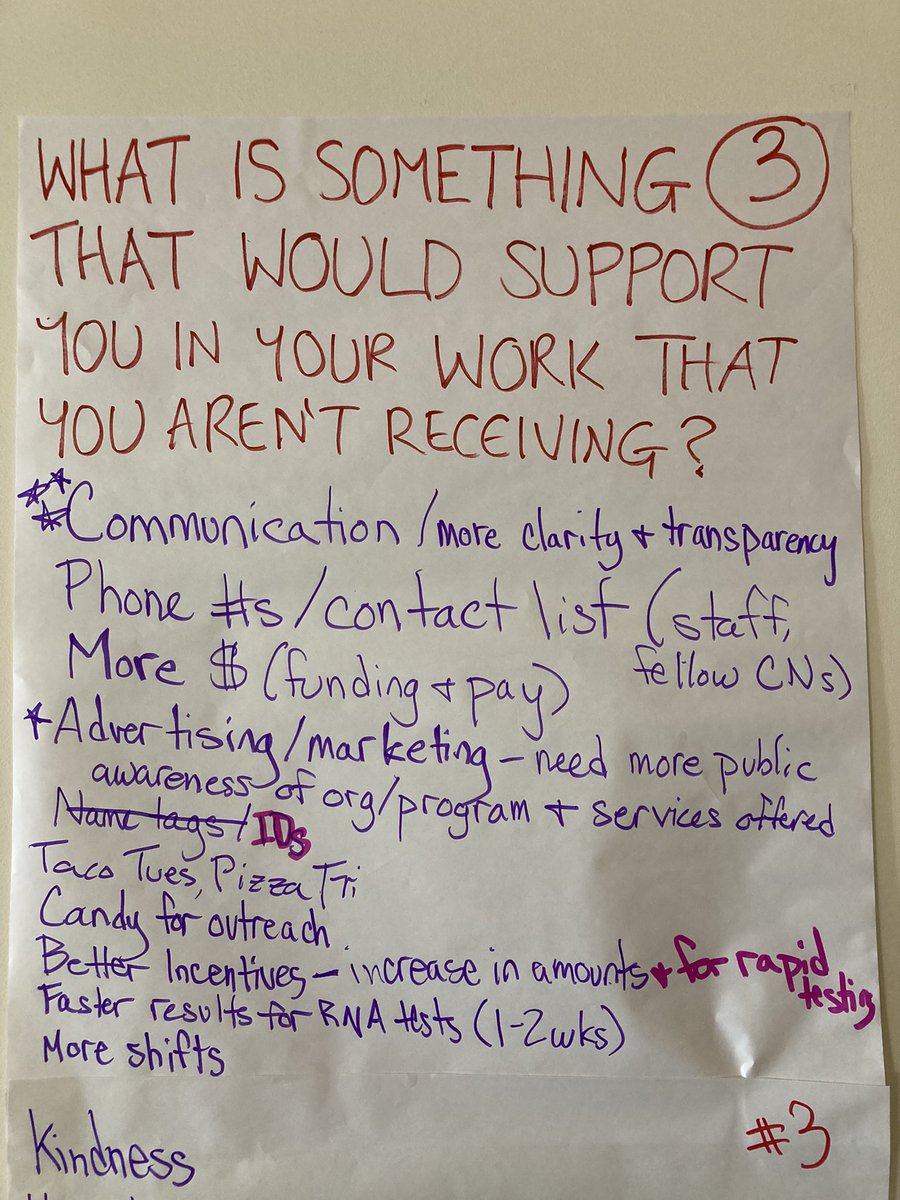 WHAT IS SOMETHING 3
THAT WOULD SUPPORT
YOU IN YOUR WORK THAT
YOU AREN'T RECEIVING?
Communication / more clarity + transparency
Phone #s/contact list (staff,
fellow CNs)
More $ (funding + pay)
Advertising/marketing – need more public
awareness of org/program + services offered
Name tags/ IDs
Taco Tues, Pizza Fri
Candy for outreach
Better Incentives – increase in amounts + for rapid
testing
Faster results for RNA tests (1-2wks)
More shifts
#3
Kindness